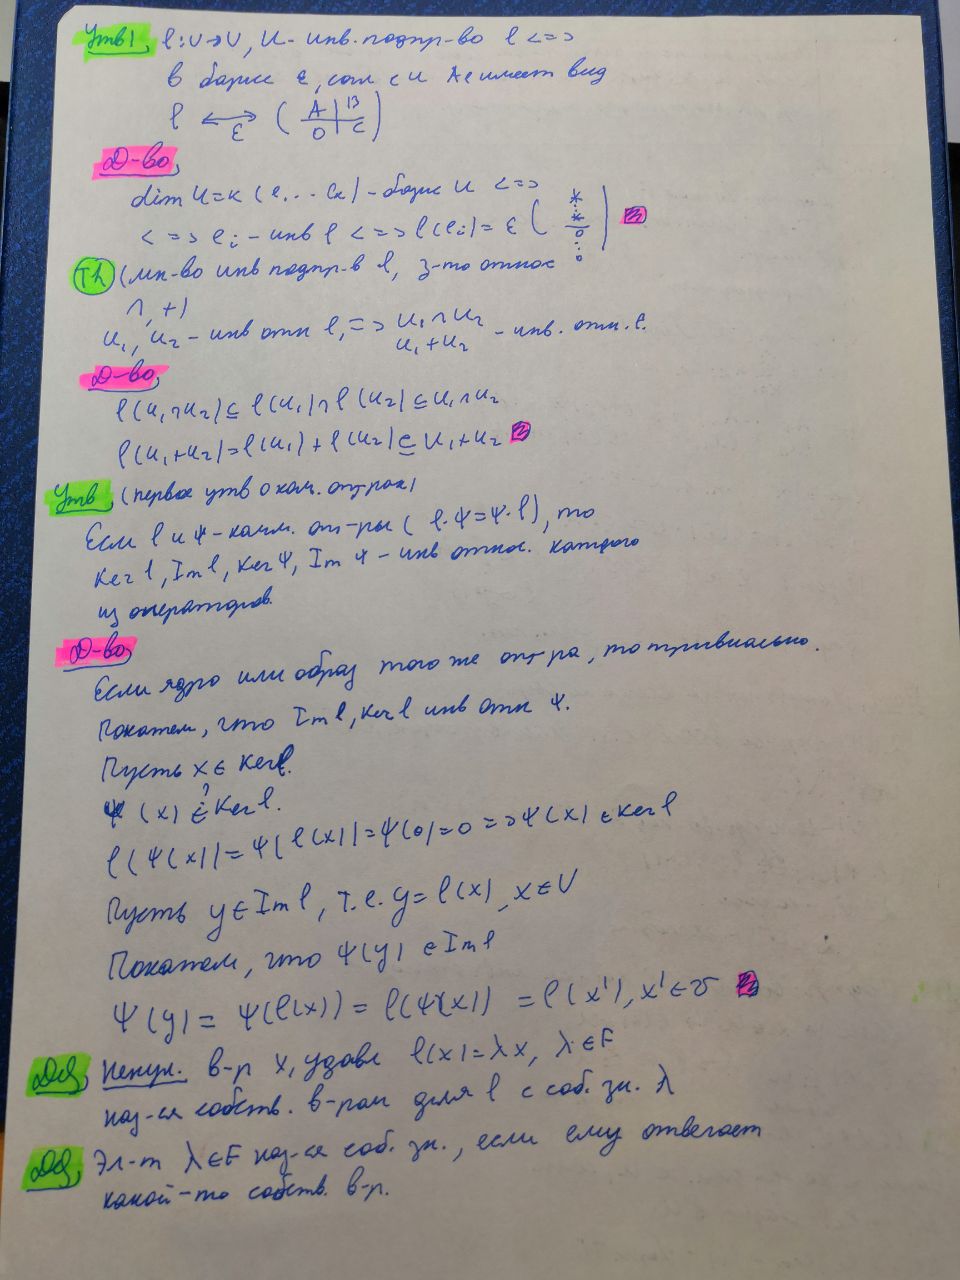 Утв1, φ: V→V, U - инв. подпр-во φ <=>
в базисе ε, согл с U Aφ имеет вид
φ <-> ε ( A | B / 0 | C )
Д-во,
dim U=k (e1...ek) - базис U <=>
<=> ei - инв φ <=> φ(ei) = ε ( * ⋮ * 0 ⋮ 0 )
Th (мн-во инв подпр-в φ, з-то относ
∩, +)
U1, U2 - инв отн φ, => U1∩U2
U1+U2 - инв. отн. φ.
Д-во,
φ(U1∩U2) ⊆ φ(U1)∩φ(U2) ⊆ U1∩U2
φ(U1+U2) = φ(U1) + φ(U2) ⊆ U1+U2
Утв, (первое утв о ком. оп-рах)
Если φ и ψ - комм. оп-ры ( φ·ψ=ψ·φ), то
Ker φ, Im φ, Ker ψ, Im ψ - инв относ. каждого
из операторов.
Д-во,
Если ядро или образ того же оп-ра, то тривиально.
Покажем, что Im φ, Ker φ инв отн ψ.
Пусть x ∈ Ker φ.
ψ(x) ∈? Ker φ.
φ(ψ(x)) = ψ(φ(x)) = ψ(0) = 0 => ψ(x) ∈ Ker φ
Пусть y ∈ Im φ, т.е. y = φ(x), x ∈ V
Покажем, что ψ(y) ∈ Im φ
ψ(y) = ψ(φ(x)) = φ(ψ(x)) = φ(x'), x' ∈ V
Def, Ненул. в-р x, удовл φ(x) = λx, λ ∈ F
наз-ся собств. в-ром для φ с соб. зн. λ
Def, Эл-т λ ∈ F наз-ся соб. зн., если ему отвечает
какой-то собств. в-р.